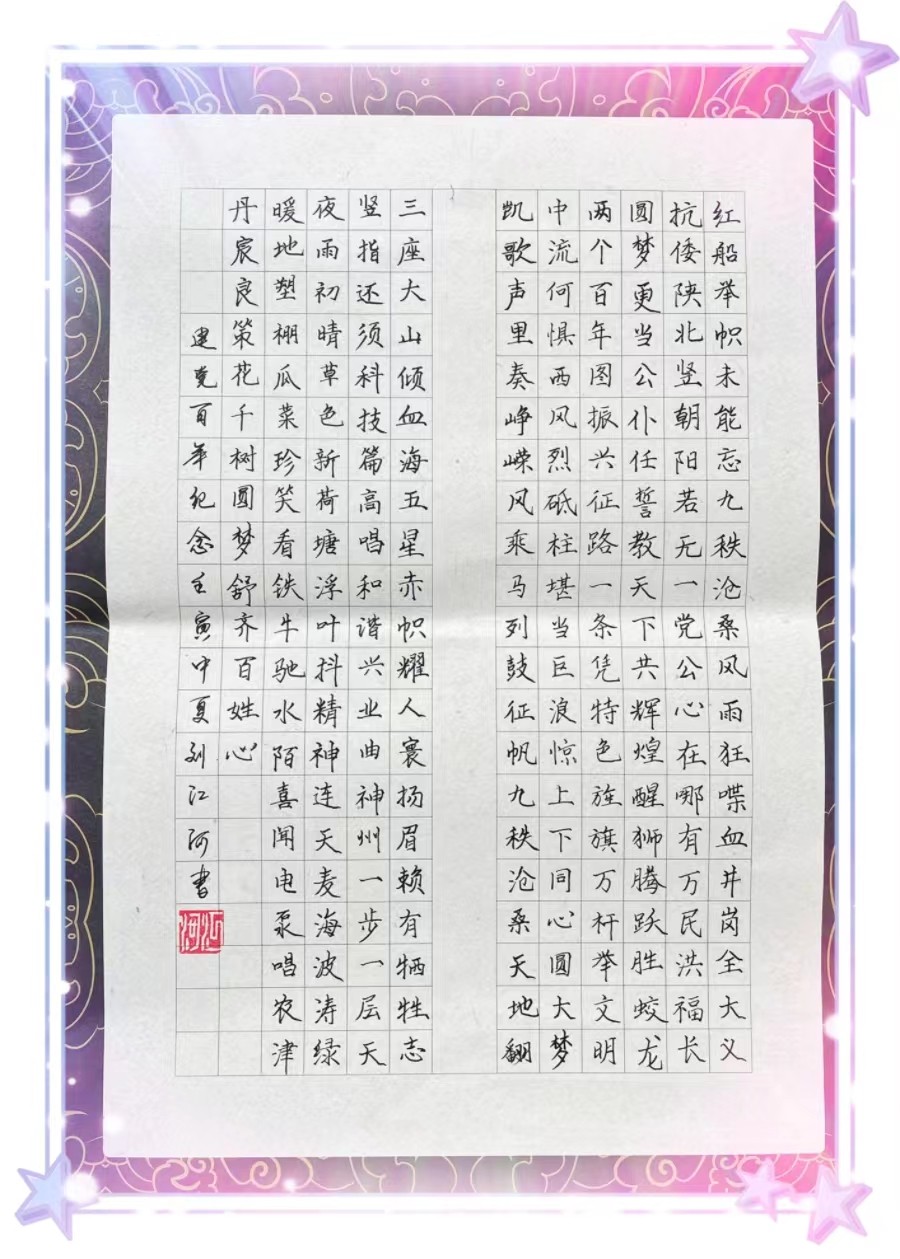 红船举帜未能忘九秩沧桑风雨狂喋血井岗全大义
抗倭陕北竖朝阳若无一党公心在哪有万民洪福长
圆梦更当公仆任誓教天下共辉煌醒狮腾跃胜蛟龙
两个百年图振兴征路一条凭特色旌旗万杆举文明
中流何惧西风烈砥柱堪当巨浪惊上下同心圆大梦
凯歌声里奏峥嵘风乘马列鼓征帆九秩沧桑天地翻
三座大山倾血海五星赤帜耀人寰扬眉赖有牺牲志
竖指还须科技篇高唱和谐兴业曲神州一步一层天
夜雨初晴草色新荷塘浮叶抖精神连天麦海波涛绿
暖地塑棚瓜菜珍笑看铁牛驰水陌喜闻电泵唱农津
丹宸良策花千树圆梦舒齐百姓心
建党百年纪念壬寅中夏刘江河书
江河